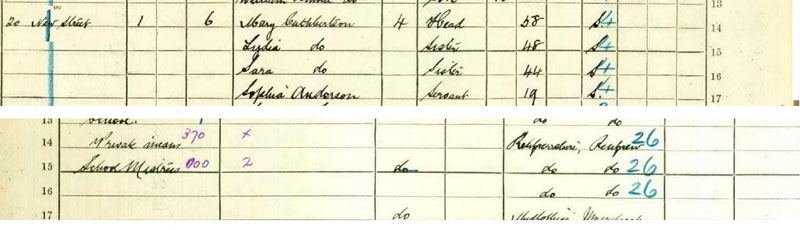 13
20 New Street 1 6 Mary Cuthbertson 4 Head 58 S+ 14
Lydia do Sister 48 S+ 15
Sara do Sister 44 S+ 16
Sophia Anderson Servant 19 S. 17
13 do do
14 Private means 370 x Renfrewshire, Renfrew 26
15 School Mistress 000 2 do do do 26
16 do do 26
17 do